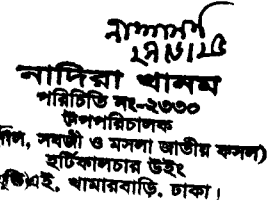 ২৭/৮/২৫
নাদিরা খানম
পরিচিতি নং-২৩৩০
উপপরিচালক
সবজী ও মসলা জাতীয় ফসল)
হর্টিকালচার উইং
খামারবাড়ি, ঢাকা।